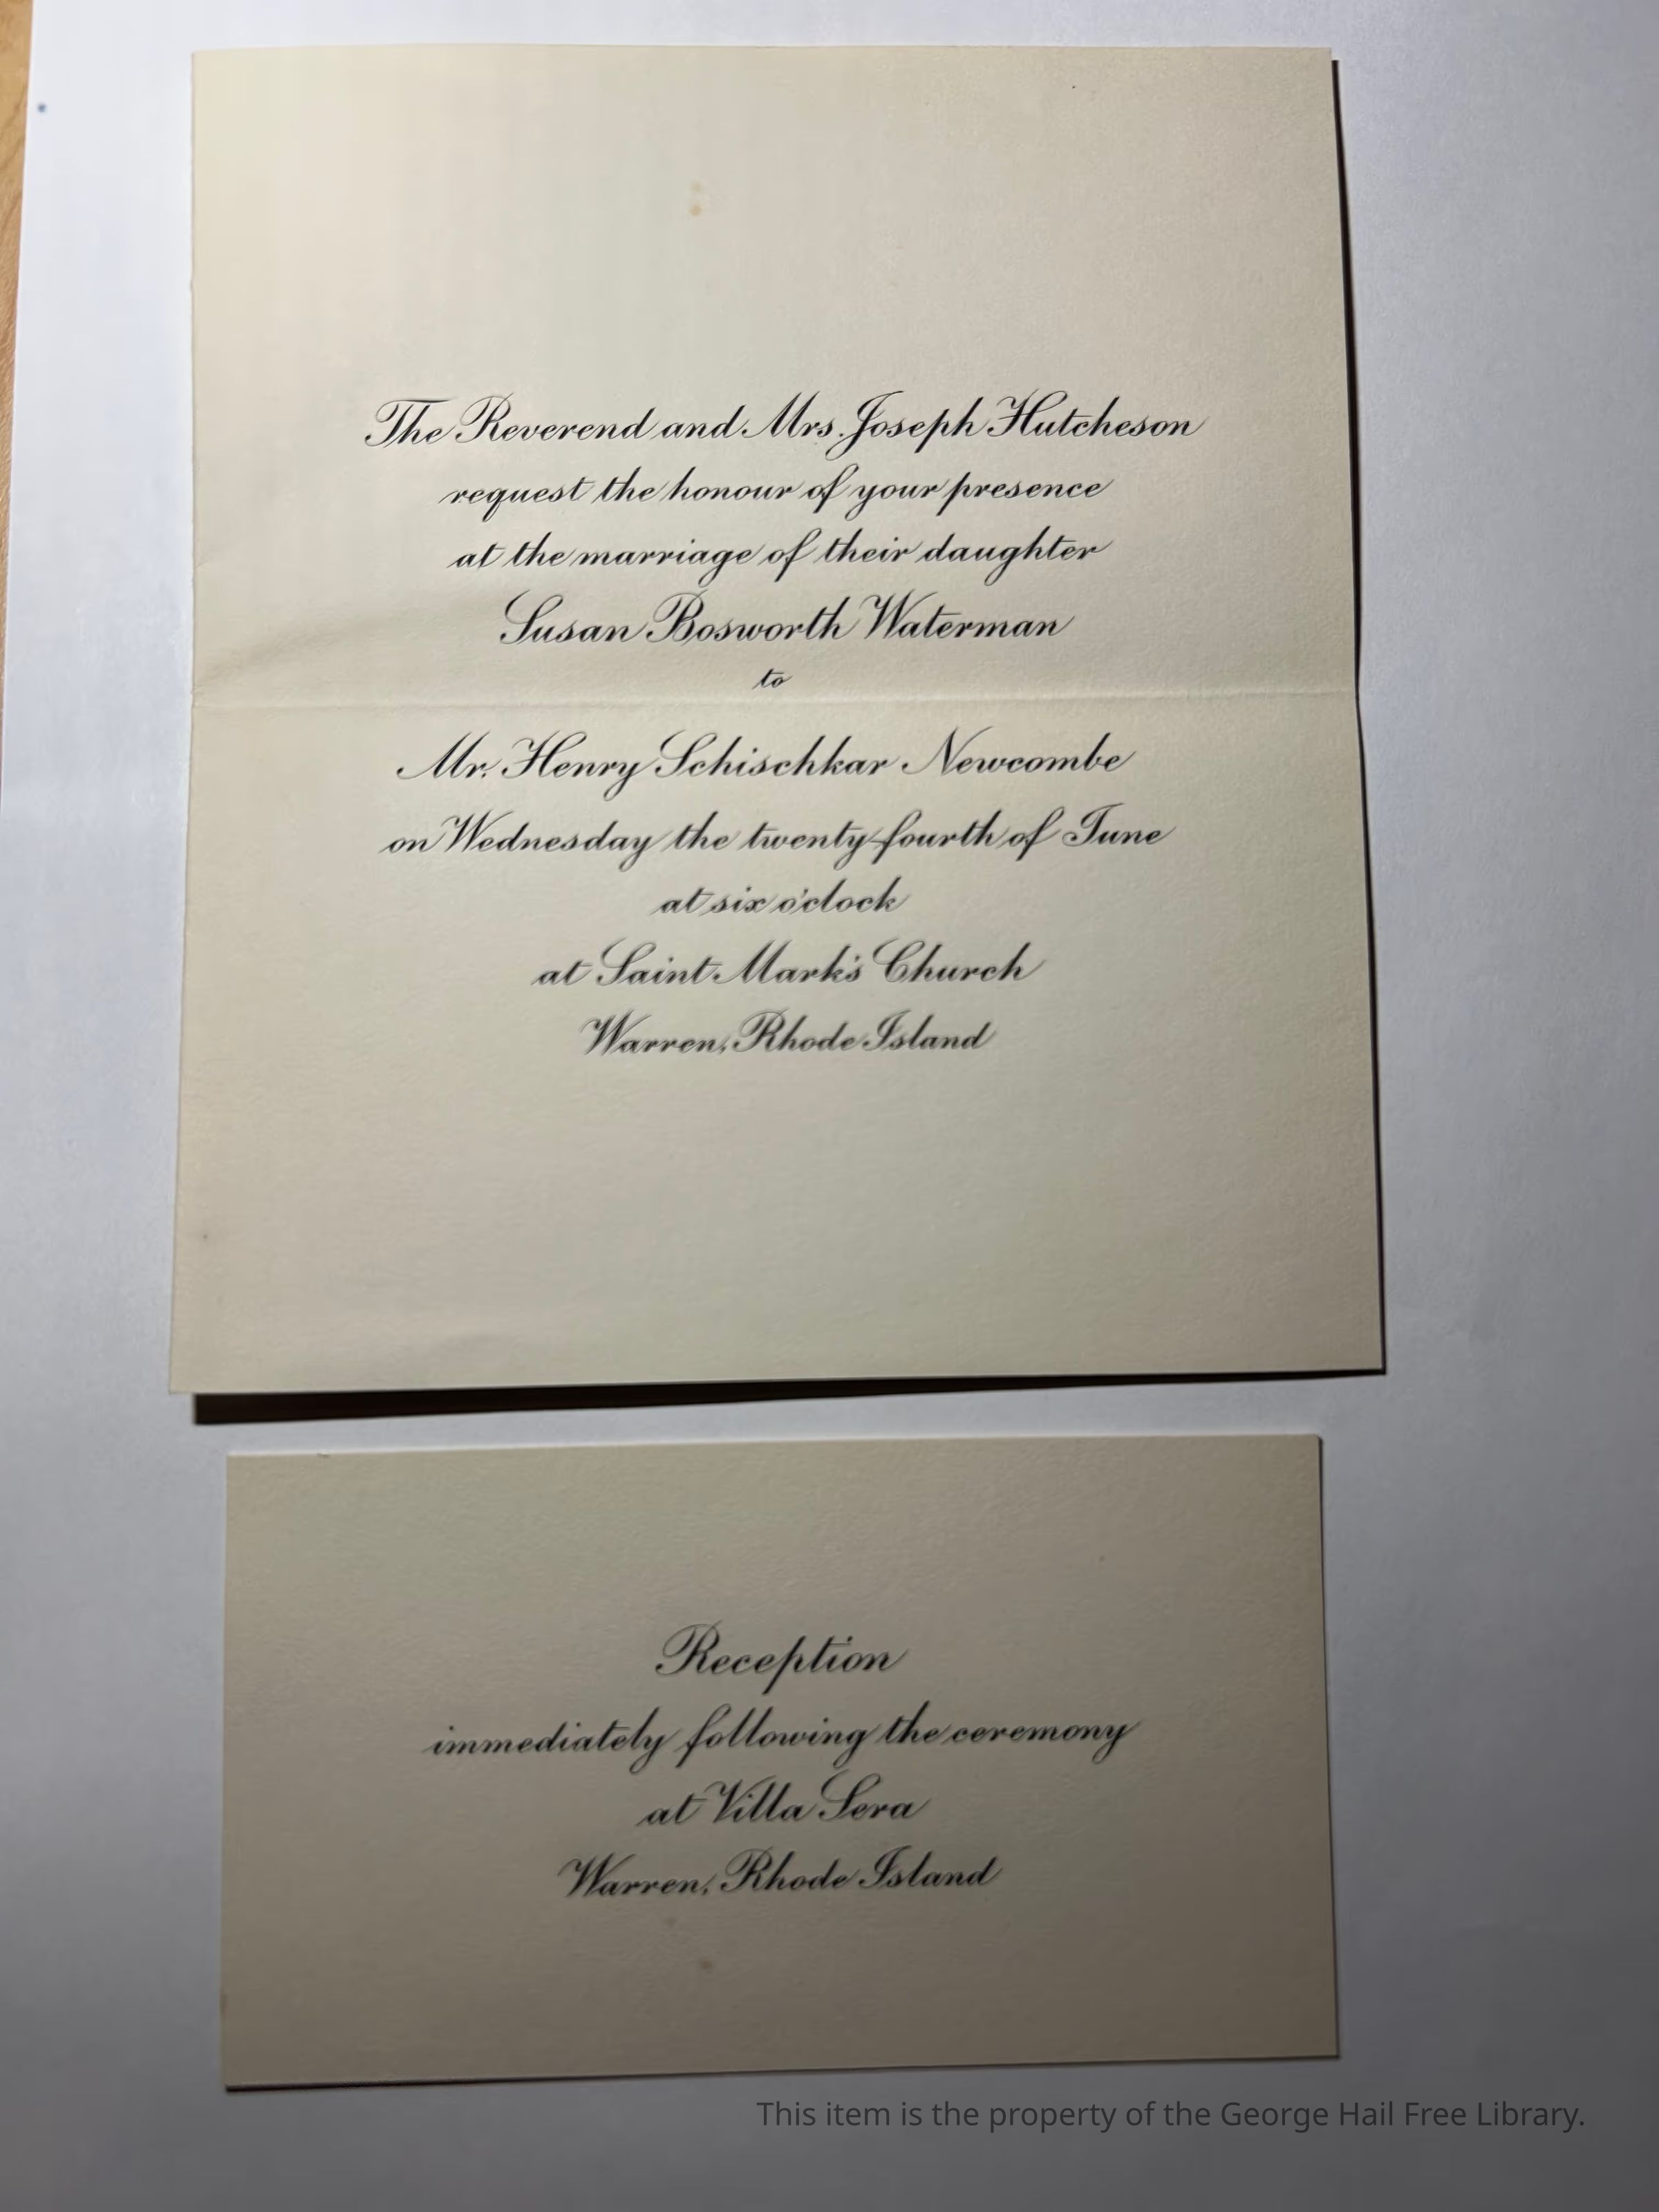 The Reverend and Mrs. Joseph Hutcheson
request the honour of your presence
at the marriage of their daughter
Susan Bosworth Waterman
to
Mr. Henry Schischkar Newcombe
on Wednesday the twenty-fourth of June
at six o'clock
at Saint Mark's Church
Warren, Rhode Island
Reception
immediately following the ceremony
at Villa Sera
Warren, Rhode Island
This item is the property of the George Hail Free Library.